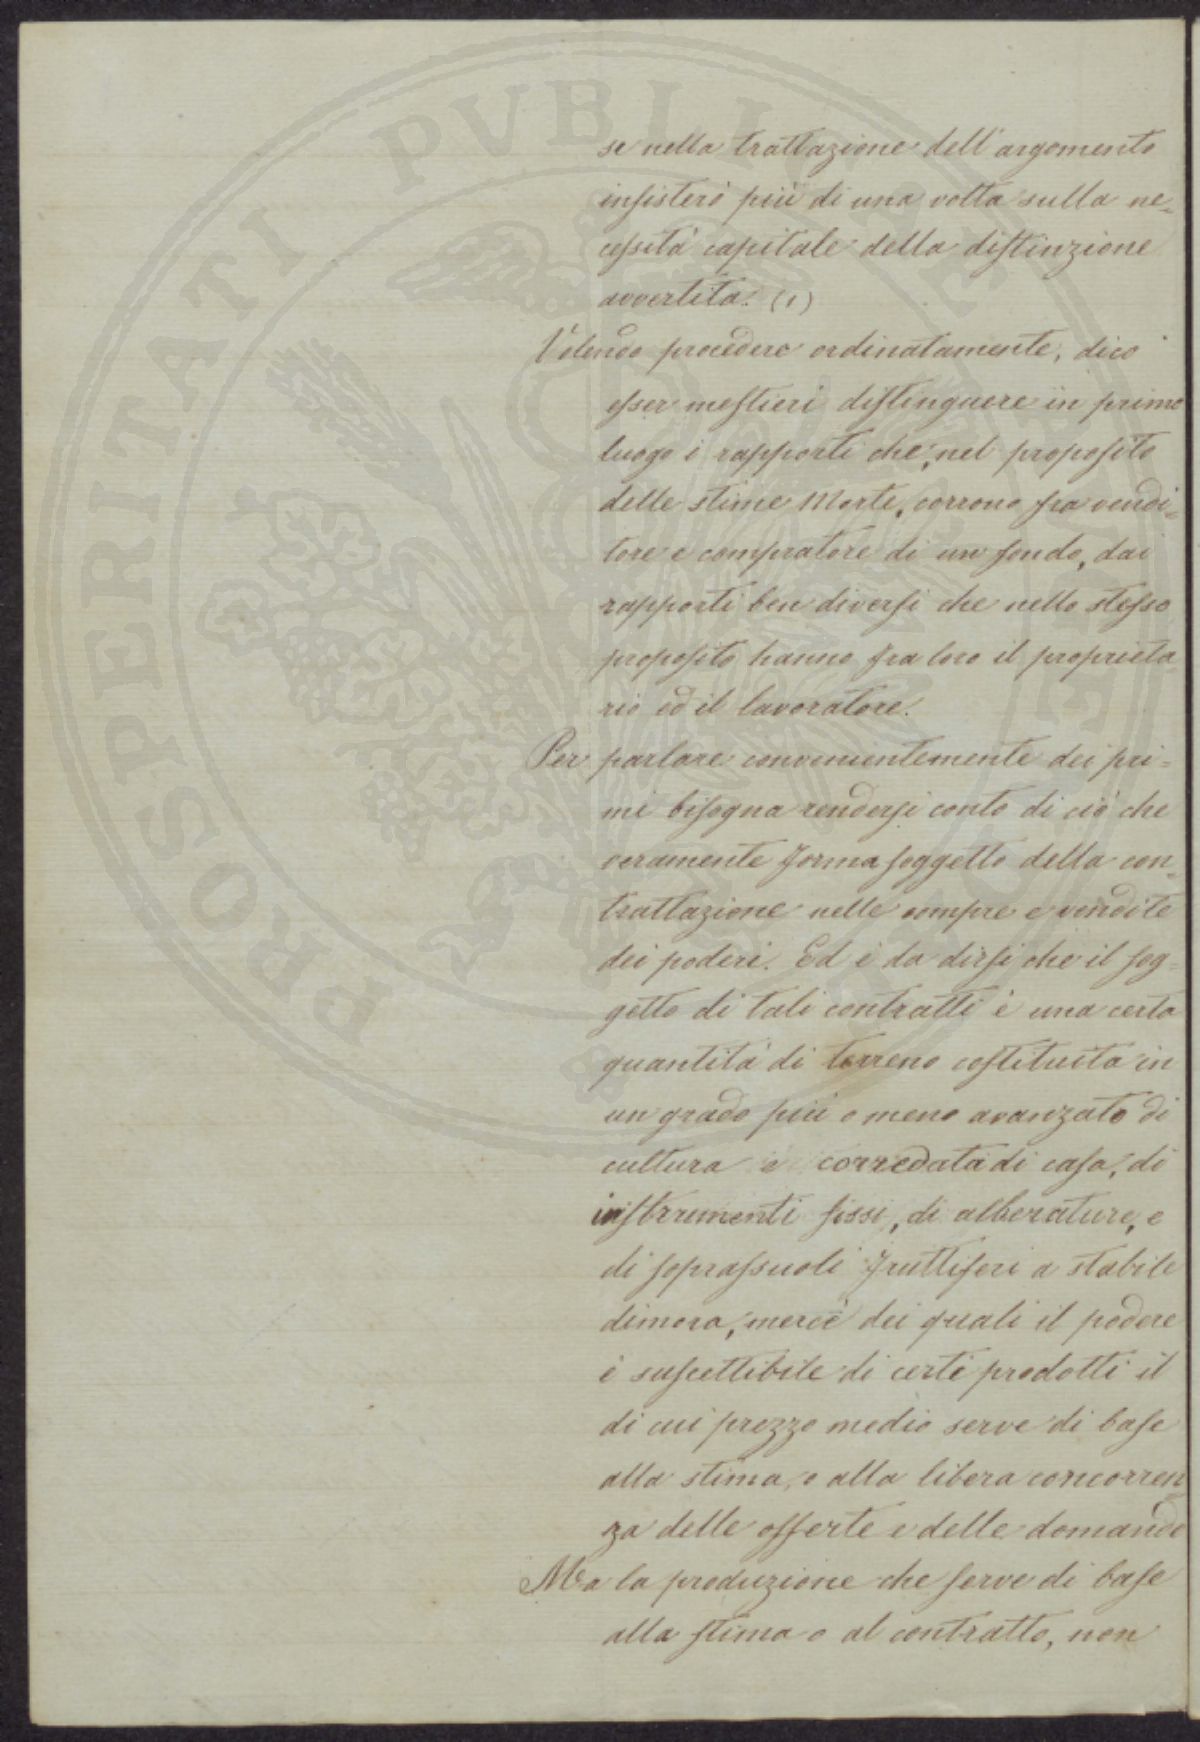 se nella trattazione dell'argomento
insisterò più di una volta sulla ne=
cessità capitale della distinzione
avvertita. (1)
Volendo procedere ordinatamente, dico
esser mestieri distinguere in primo
luogo i rapporti che, nel proposito
delle stime Morte, corrono fra vendi=
tore e compratore di un fondo, dai
rapporti ben diversi che nello stesso
proposito hanno fra loro il proprieta=
rio ed il lavoratore.
Per parlare convenientemente dei pri=
mi bisogna rendersi conto di ciò che
veramente forma soggetto della con=
trattazione nelle compre e vendite
dei poderi. Ed è da dirsi che il sog=
getto di tali contratti è una certa
quantità di terreno costituita in
un grado più o meno avanzato di
cultura e corredata di casa, di
instrumenti fissi, di alberature, e
di soprassuoli fruttiferi a stabile
dimora, mercè dei quali il podere
è suscettibile di certi prodotti il
di cui prezzo medio serve di base
alla stima, o alla libera concorren
za delle offerte e delle domande
Ma la produzione che serve di base
alla stima o al contratto, non
PROSPERITATI PVBLICAE